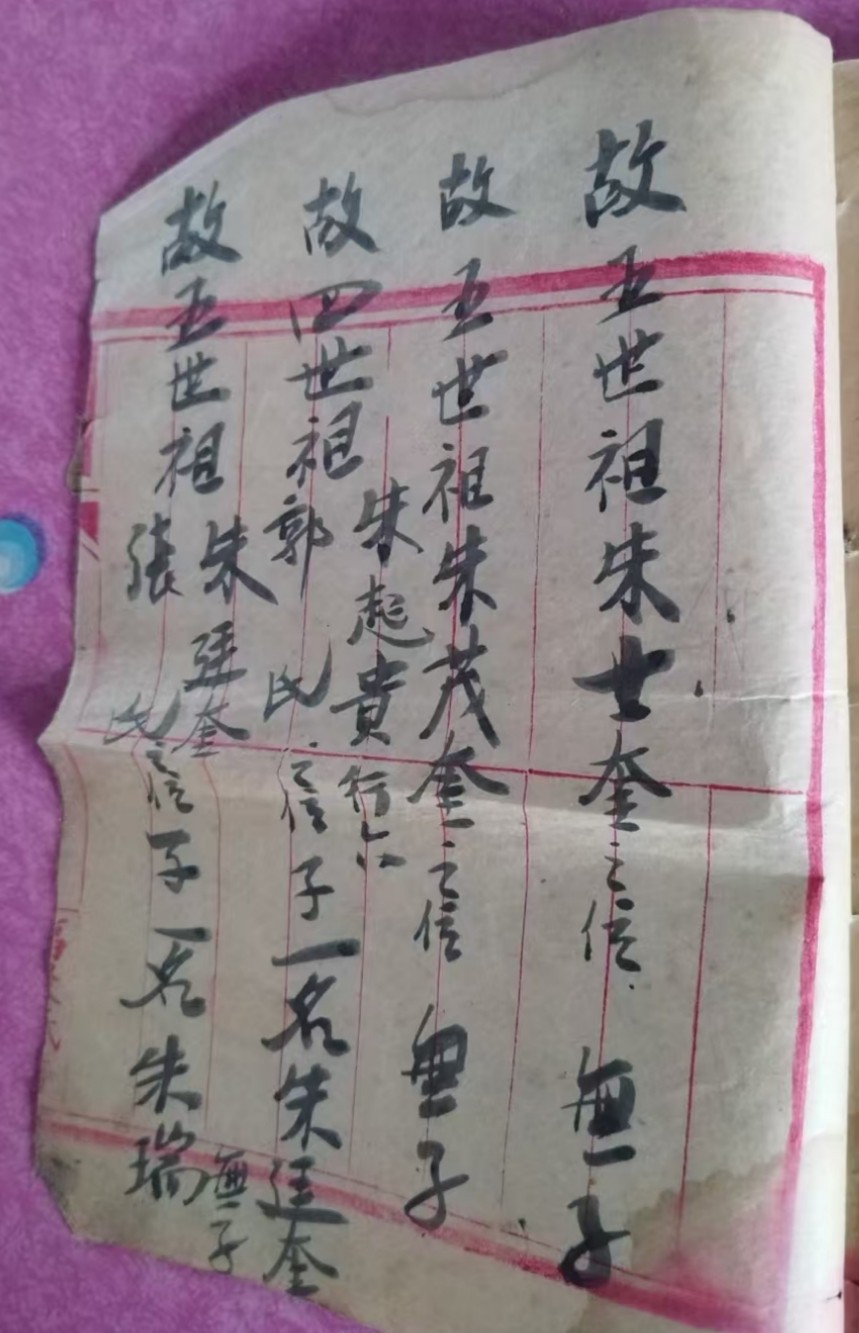 故五世祖朱世奎之位 無子
故五世祖朱茂奎之位 無子
故四世祖 朱起貴行六 郭氏 之位 子一名朱廷奎
故五世祖 朱廷奎 張氏 之位 子一名朱瑞 無子